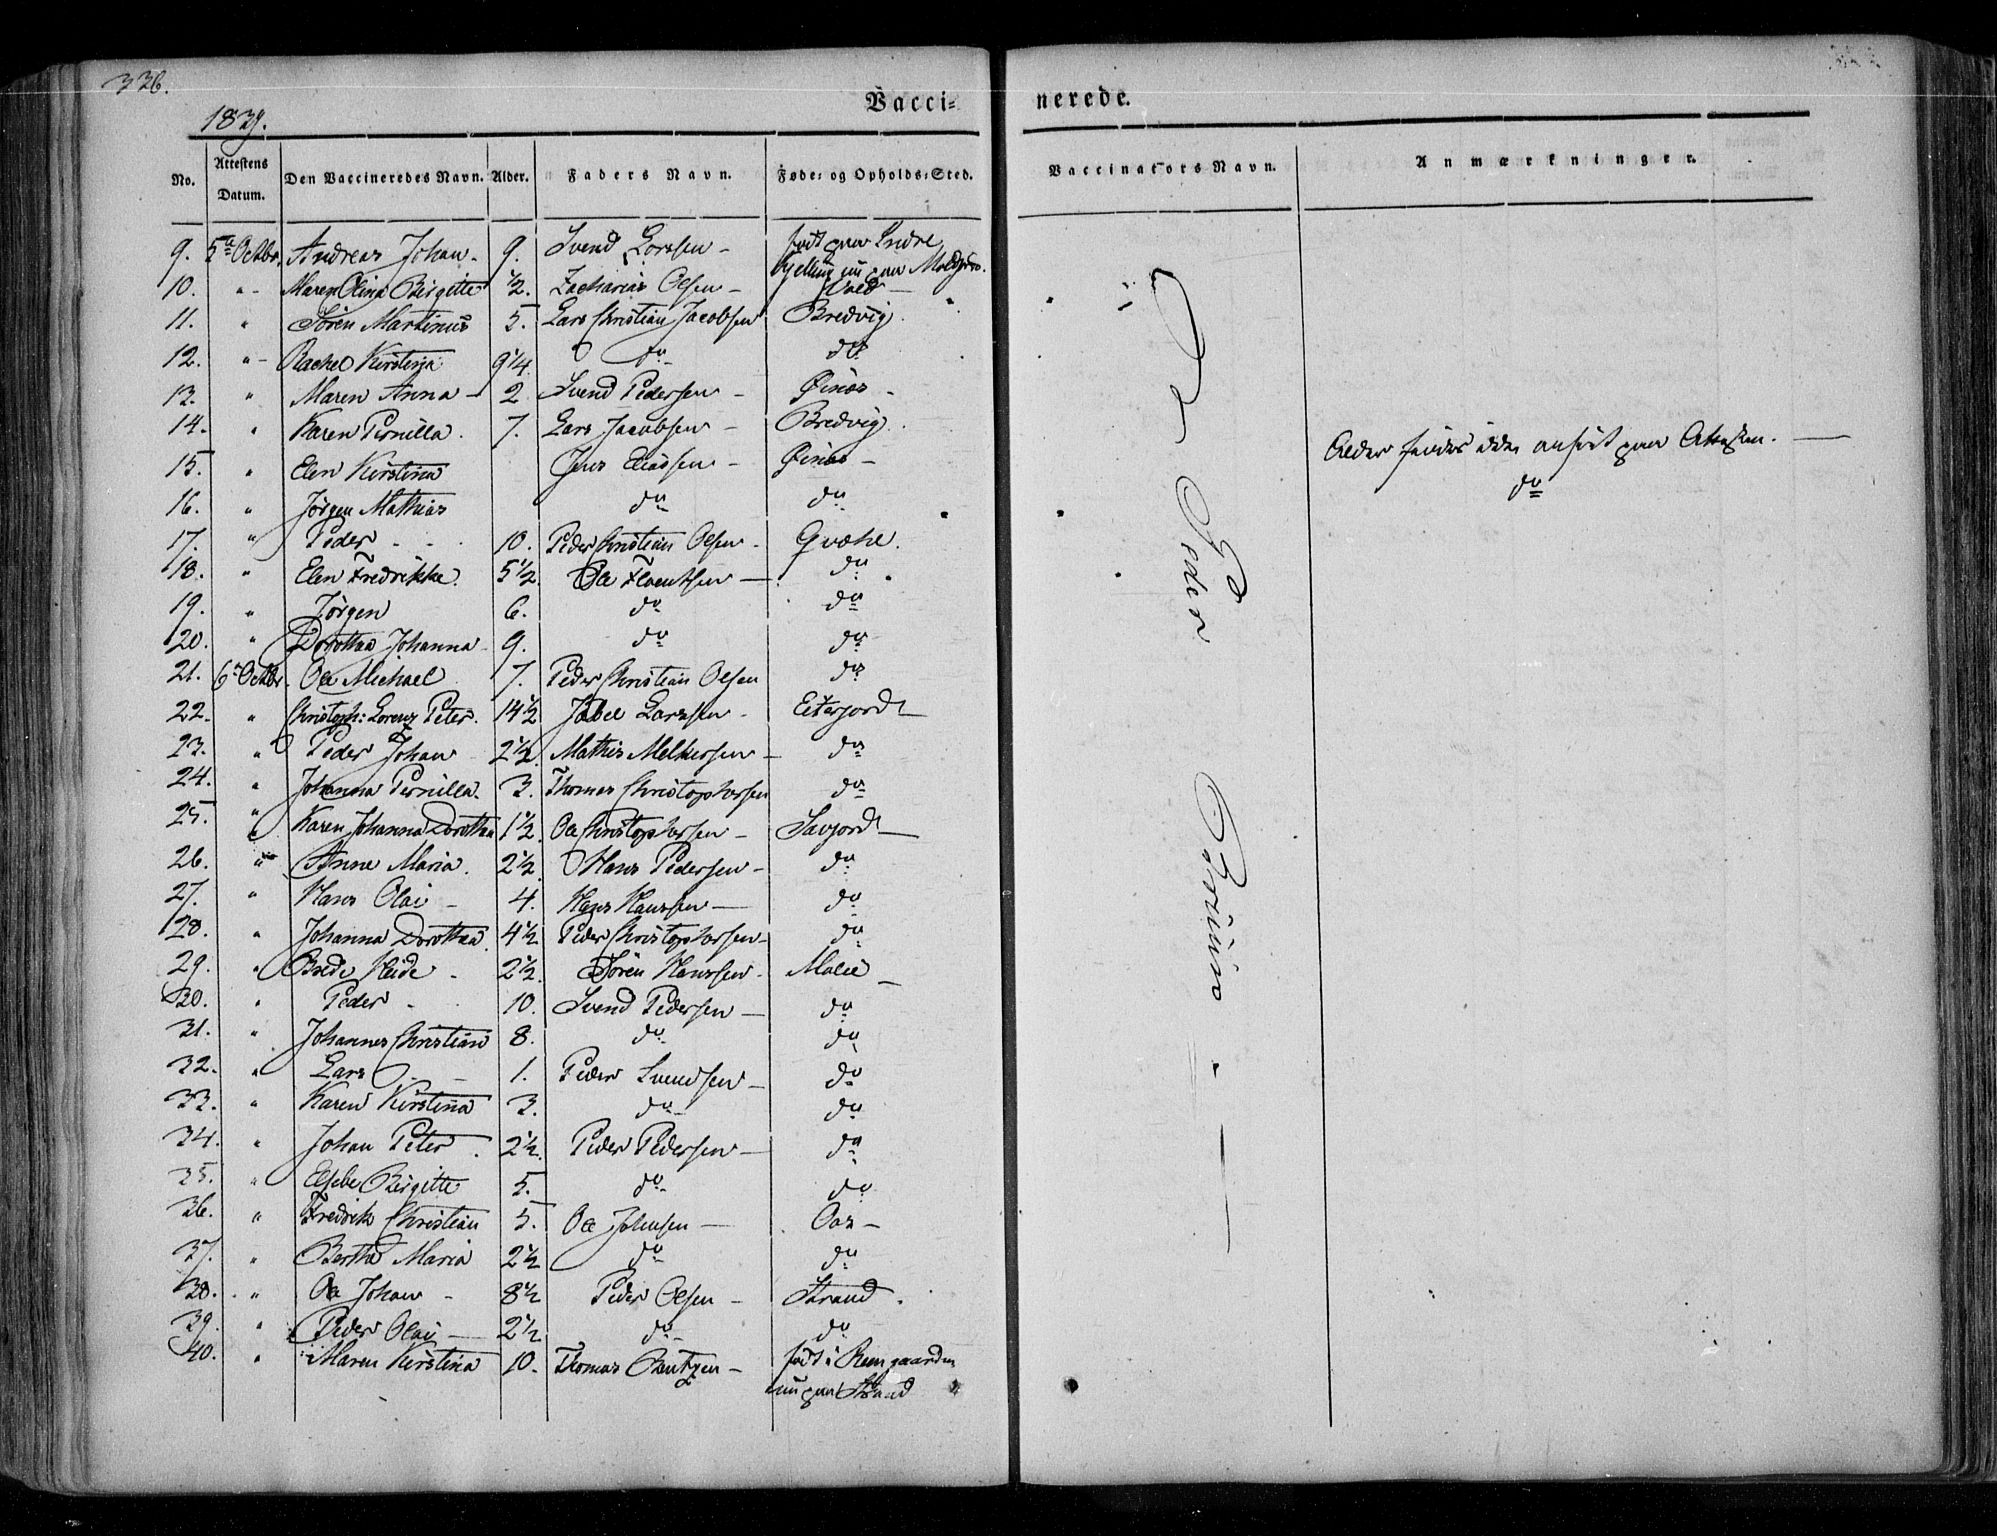 336.
Vacci-
nerede.
1839.
No. Attestens Datum. Den Vaccineredes Navn. Alder. Faders Navn. Føde- og Opholds-Sted. Vaccinators Navn. Anmærkninger.
9. 5te Octbr. Andreas Johan 9. Svend Larssen født paa Indre
Hjelling nu paa
10. " Maren Olina Birgitte 1/2. Zacharias Olsen Vold
11. " Sören Martinus 5. Lars Christian Jacobsen Bredvig
12. " Rachel Kirstina 9 1/4. do do
13. " Maren Anna 2 Svend Pedersen Øinæs
14. " Karen Pernilla 7. Lars Jacobsen Bredvig
15. " Elen Kirstina Jens Eliassen Øinæs Alder findes ikke anført paa Attesten.
16. " Jörgen Mathias do do do
17. " Peder 10. Peder Christian Olsen Qvæhe.
18. " Elen Fredrikke 5 1/2 Ole Floentsen do
19. " Jörgen 6. do do
20. " Dorothea Johanna 9. do do
21. 6te Octbr. Ole Michael 7. Peder Christian Olsen do
22. " Christoph: Lorenz Peter 14 1/2 Jabel Larssen Eiterjord
23. " Peder Johan 2 1/2 Mathis Melkersen do
24. " Johanna Pernilla 3. Thomas Christophersen do
25. " Karen Johanna Dorothea 1 1/2 Ole Christophersen Savjord
26. " Anne Maria 2 1/2 Hans Pedersen do
27. " Hans Olai 4. Hans Hanssen do
28. " Johanna Dorothea 4 1/2 Peder Christophersen do
29. " Brede Heide 2 1/2 Sören Hanssen
30. " Peder 10. Svend Pedersen do
31. " Johannes Christian 8. do do
32. " Lars 1. Peder Svendsen do
33. " Karen Kirstina 3. do do
34. " Johan Peter 2 1/2 Peder Pedersen do
35. " Elsebe Birgitte 5. do do
36. " Fredrik Christian 5. Ole Johnsen Oos
37. " Bertha Maria 2 1/2 do do
38. " Ole Johan 8 1/2 Peder Olsen Strand
39. " Peder Olai 2 1/2 do do
40. " Maren Kirstina 10. Thomas Bentzen født i
nu paa Strand